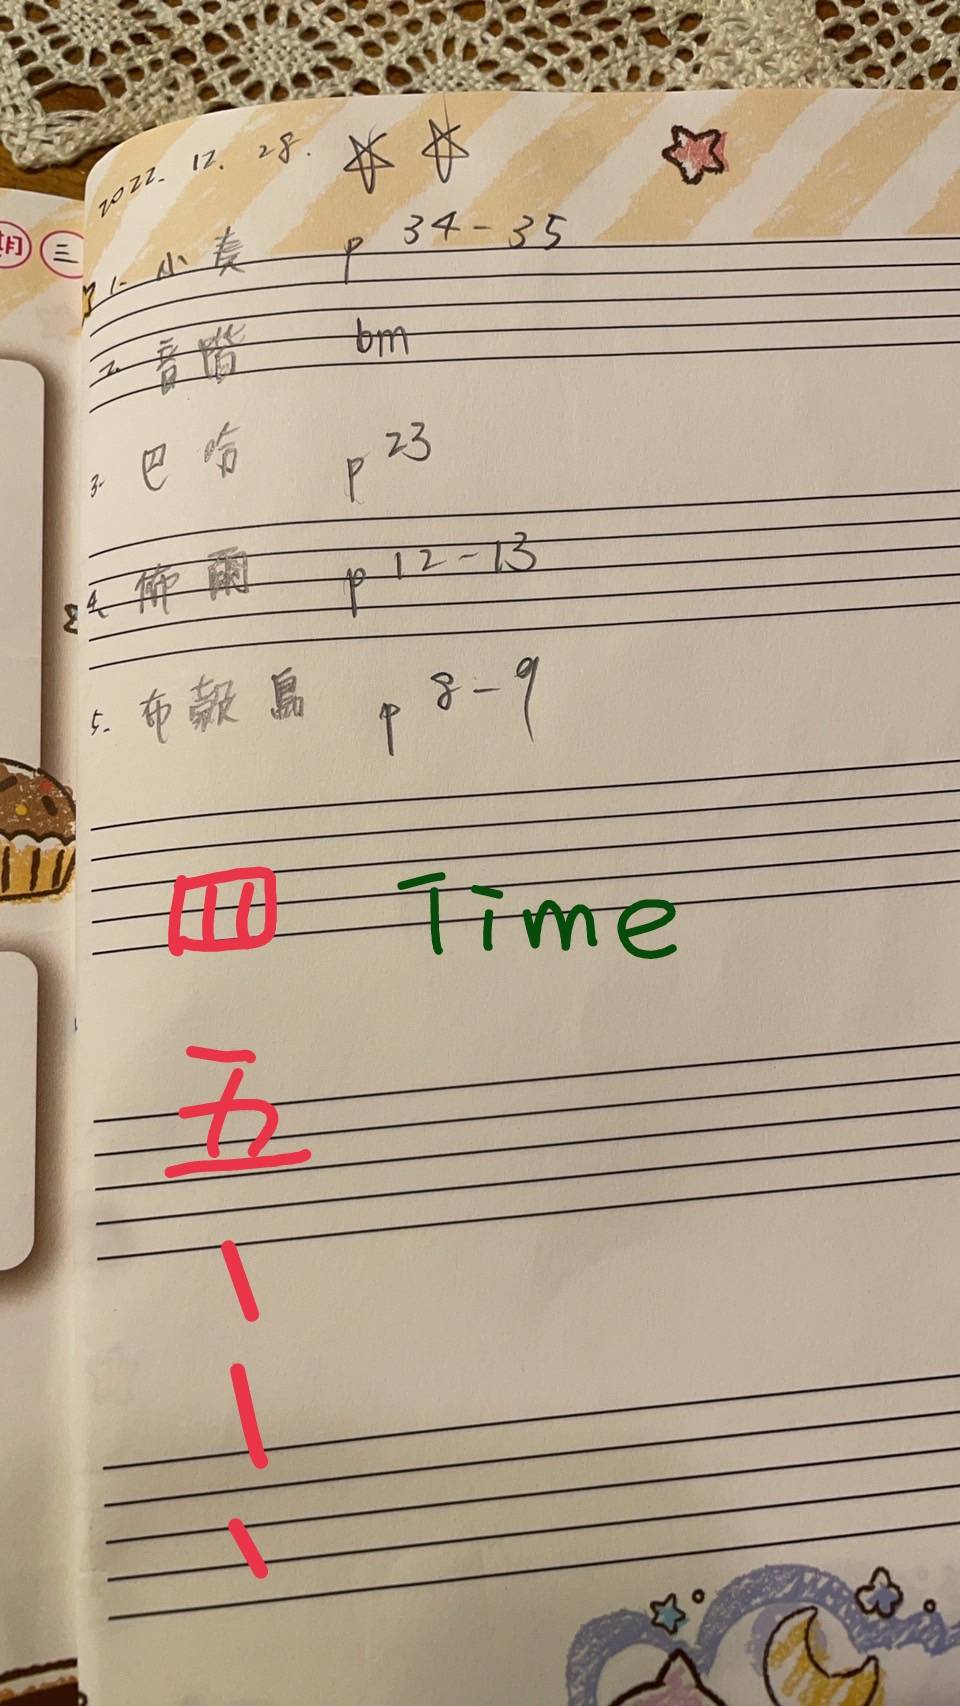 2022. 12. 28.
期 三
1. 小麦 p 34-35
2. 音階 bm
3. 巴哈 p 23
4. 佈爾 p 12-13
5. 布穀鳥 p 8-9
四 Time
五